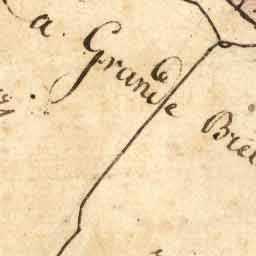 a Grande Bre